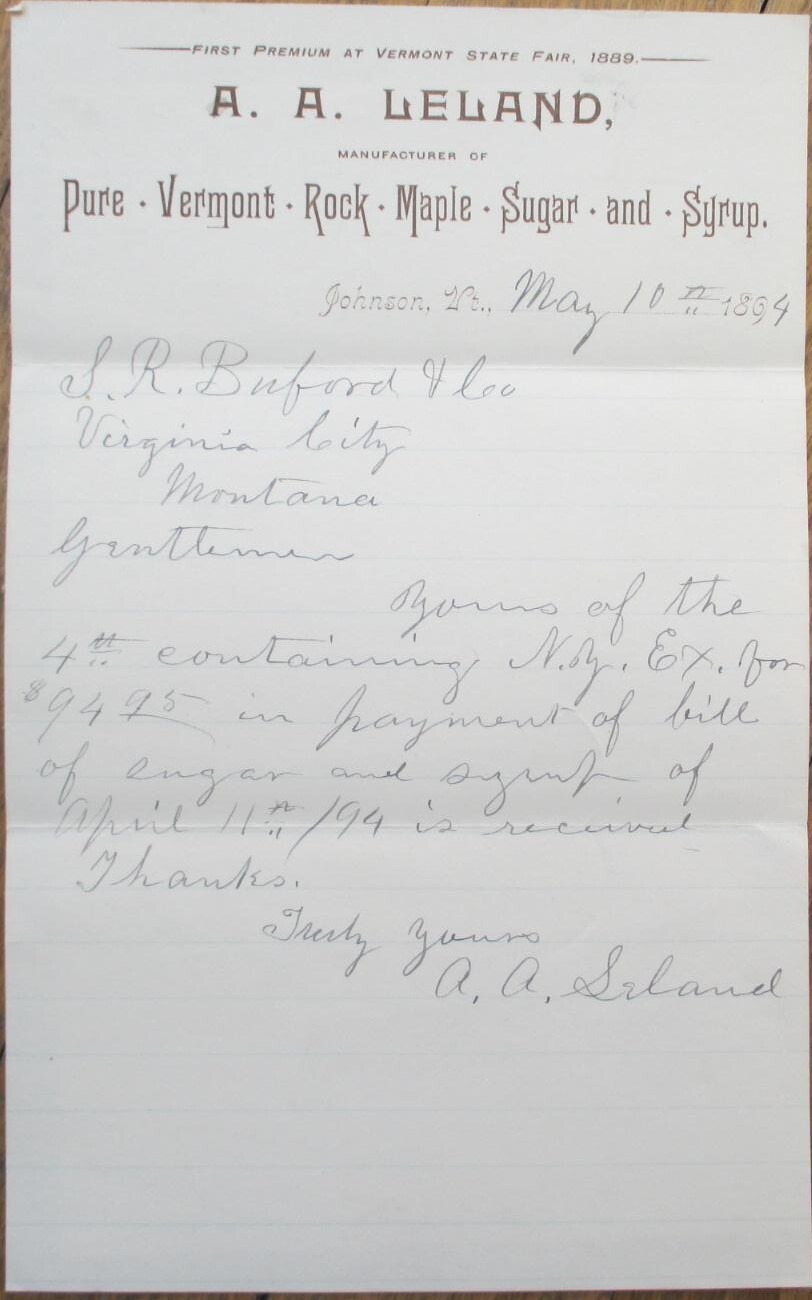 FIRST PREMIUM AT VERMONT STATE FAIR, 1889.
A. A. LELAND,
MANUFACTURER OF
Pure · Vermont · Rock · Maple · Sugar · and · Syrup.
Johnson, Vt., May 10th 1894
S. R. Buford & Co
Virginia City
Montana
Gentlemen
Yours of the
4th containing N.Y. Ex. for
$94 95 in payment of bill
of sugar and syrup of
April 11th /94 is received
Thanks.
Truly yours
A. A. Leland